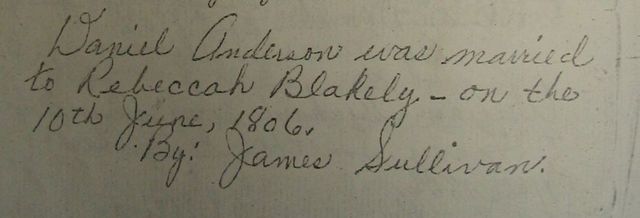 Daniel Anderson was married
to Rebeccah Blakely - on the
10th June, 1806.
By: James Sullivan.